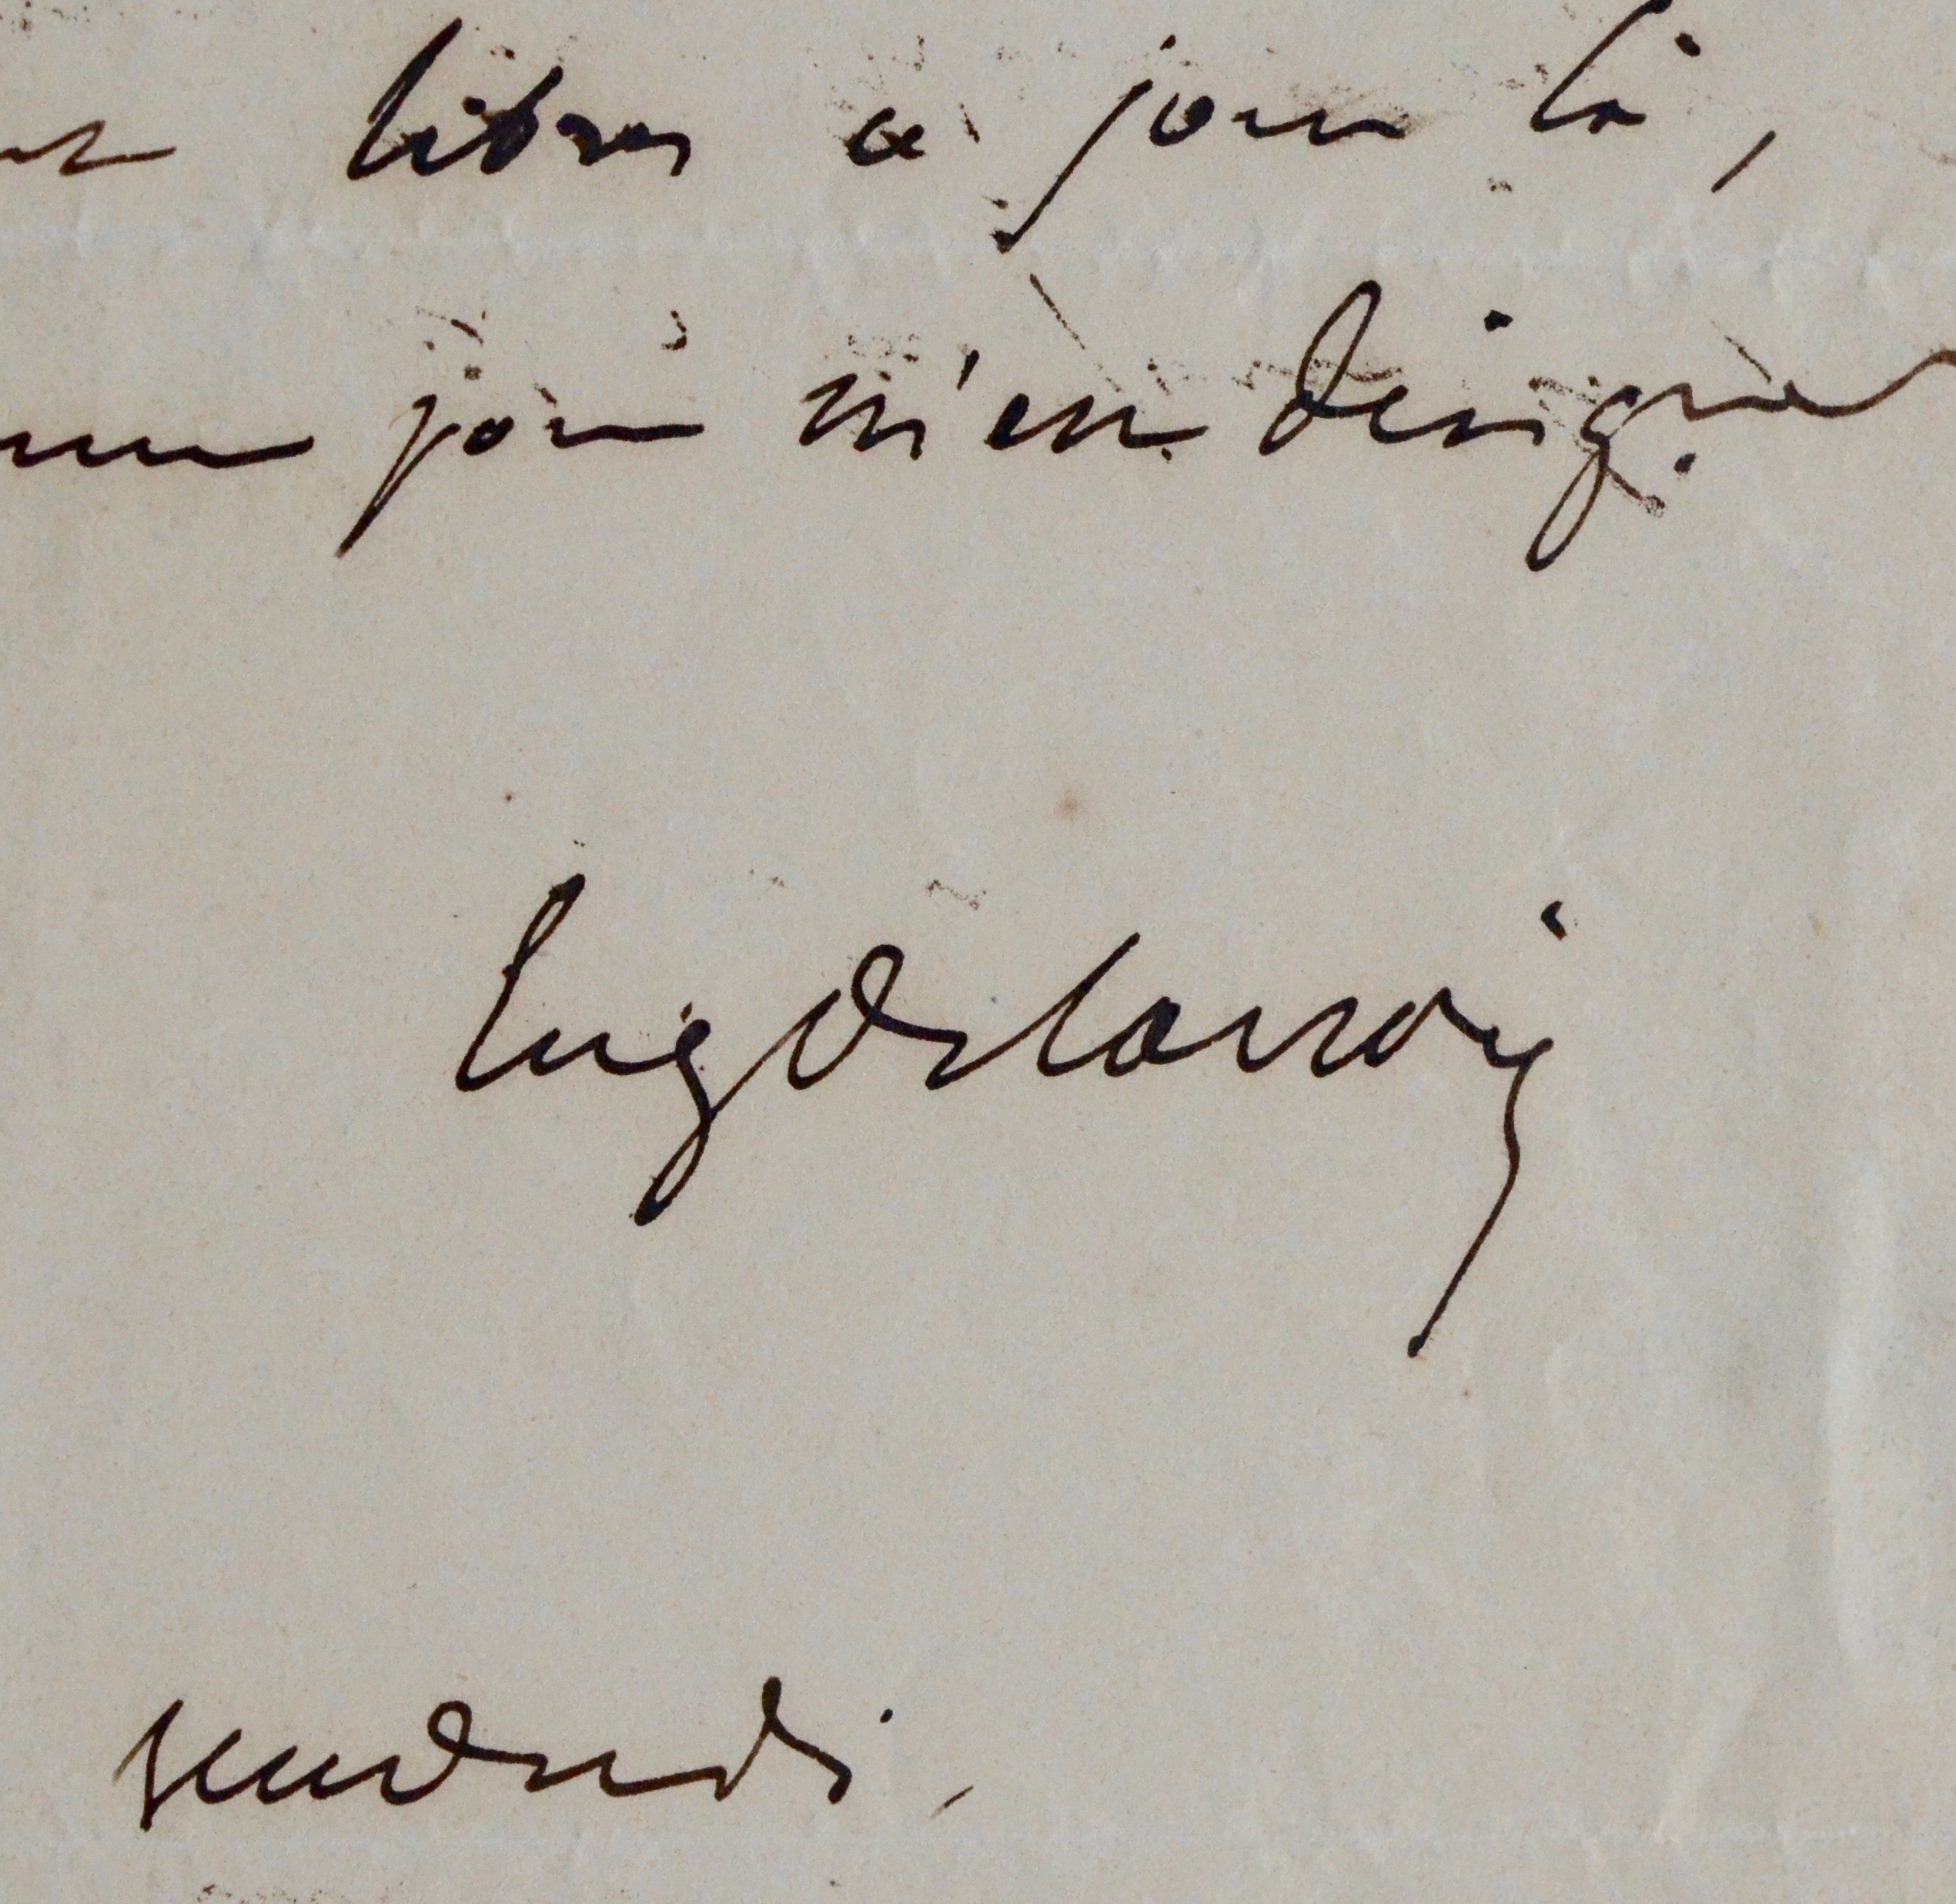 libres ce jour là,
jour m'en designer
EugDelacroix
vendredi.